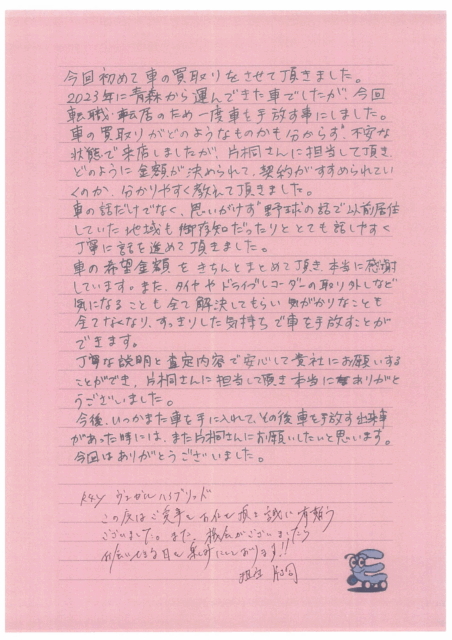 今回初めて車の買取りをさせて頂きました。
2023年に青森から運んできた車でしたが、今回
転職・転居のため一度車を手放す事にしました。
車の買取りがどのようなものかも分からず、不安な
状態で来店しましたが、片桐さんに担当して頂き、
どのように金額が決められて、契約がすすめられてい
くのか、分かりやすく教えて頂きました。
車の話だけでなく、思いがけず野球の話で以前居住
していた地域も御存知だったりととても話しやすく
丁寧に話を進めて頂きました。
車の希望金額をきちんとまとめて頂き、本当に感謝
しています。また、タイヤやドライブレコーダーの取り外しなど
気になることも全て解決してもらい気がかりなことも
全てなくなり、すっきりした気持ちで車を手放すことが
できます。
丁寧な説明と査定内容で安心して貴社にお願いする
ことができ、片桐さんに担当して頂き本当にありがと
うございました。
今後、いつかまた車を手に入れて、その後車を手放す出来事
があった時には、また片桐さんにお願いしたいと思います。
今回はありがとうございました。
R4y ヴェゼルハイブリッド
この度はご愛車お任せ頂き誠に有難う
ございました。また、機会がございましたら
お会い出来る日を楽しみにしております!!
担当 片桐